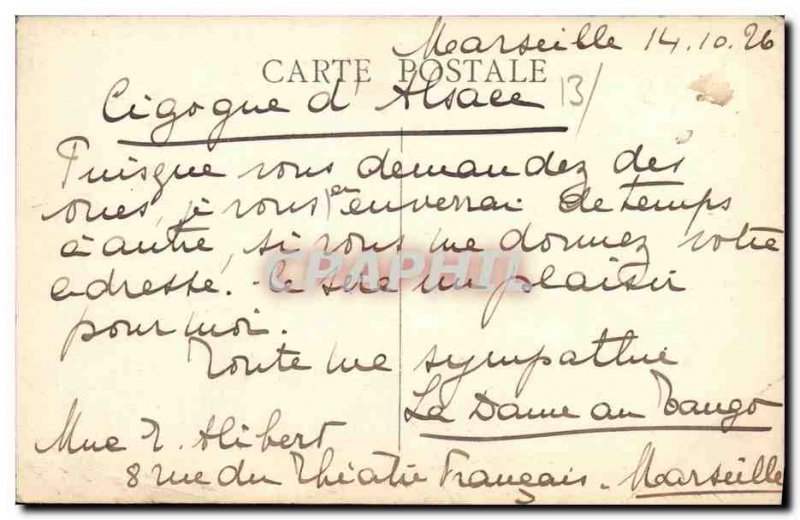 Marseille 14.10.26
CARTE POSTALE
Cigogne d'Alsace 13/
Puisque vous demandez des
vues, je vous en enverrai de temps
à autre, si vous me donnez votre
adresse. Ce sera un plaisir
pour moi.
Toute ma sympathie
La Dame au Tango
Mme T. Alibert
8 rue du Théâtre Français. Marseille
CPAPHIL